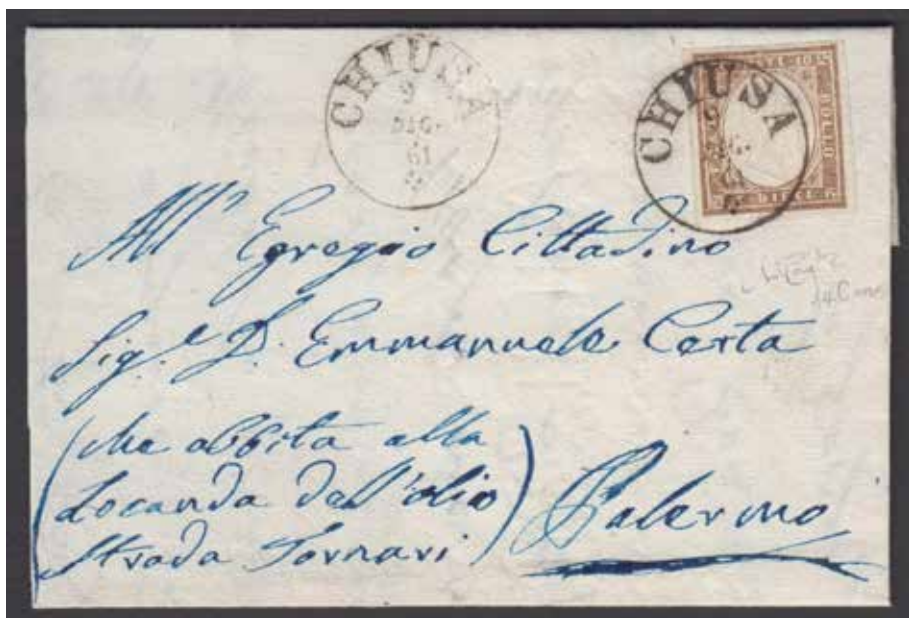 CHIUSA
9
DIC.
61
CHIUSA
9
All' Egregio Cittadino
Sig.e D. Emmanuele Certa
(che abbita alla
Locanda dell'olio
Strada Fornari)
Palermo